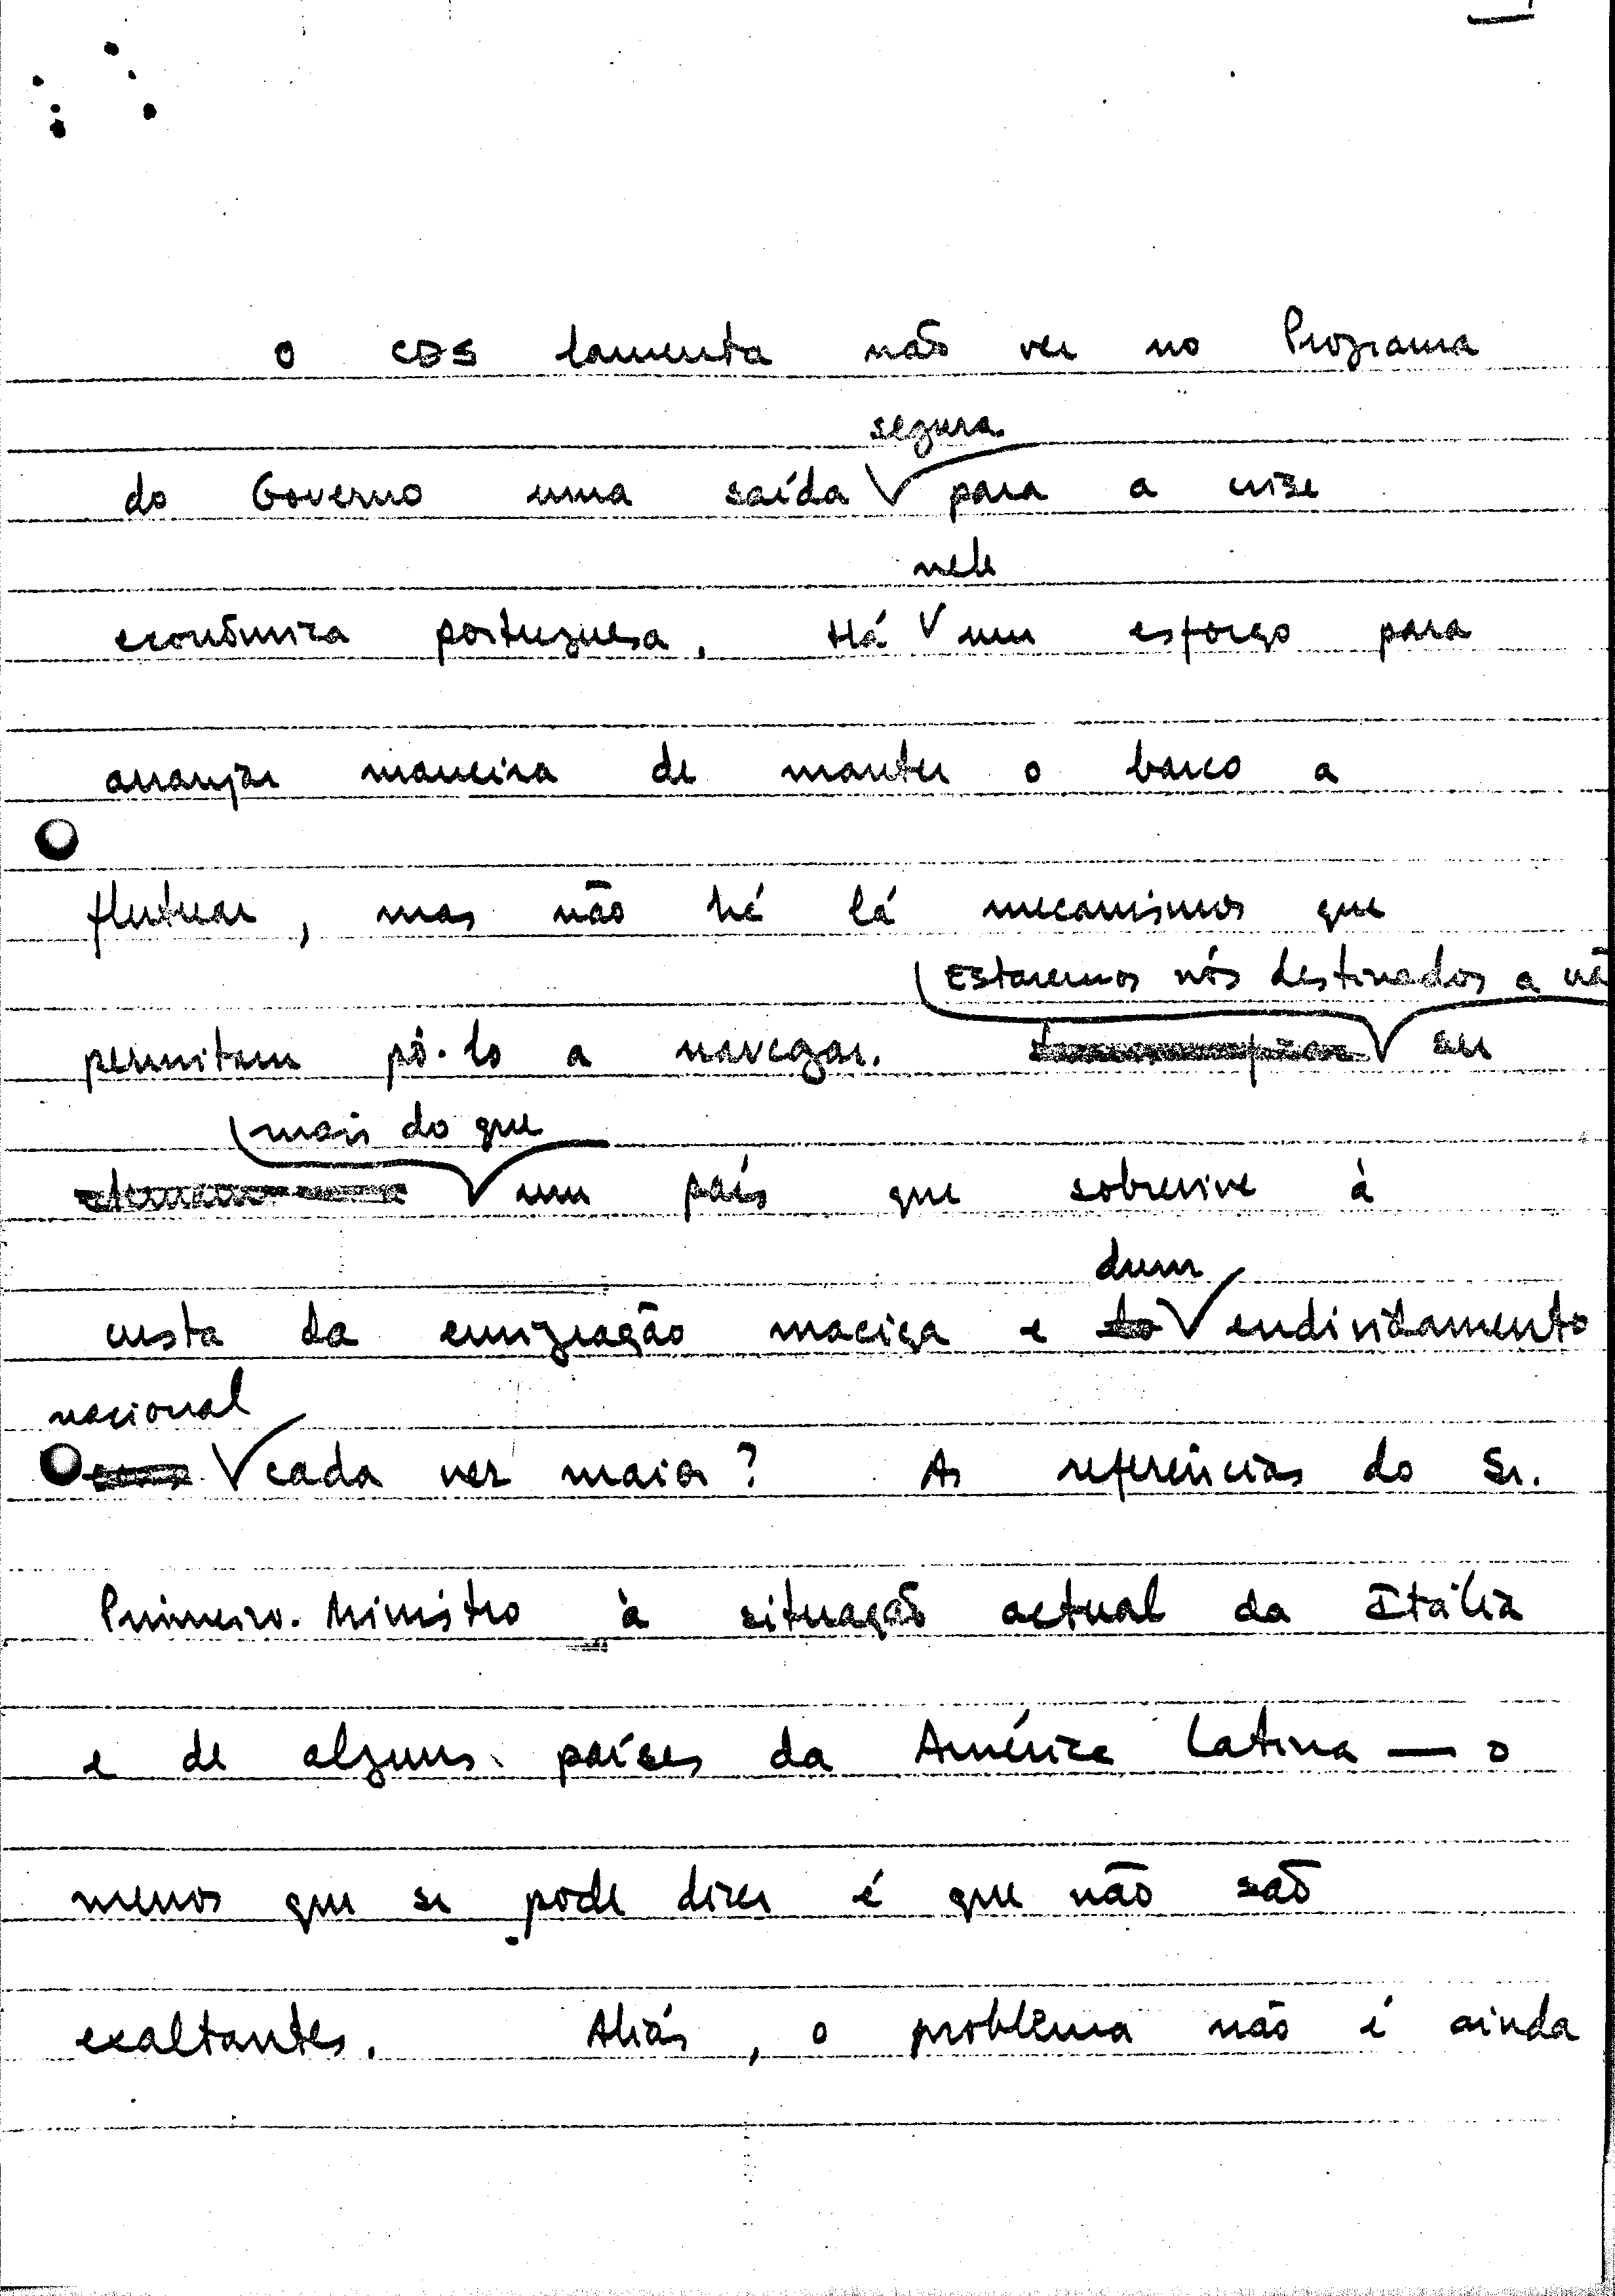 O CDS lamenta não ver no Programa
segura
do Governo uma saída para a crise
nele
económica portuguesa. Há um esforço para
arranjar maneira de manter o barco a
flutuar, mas não há lá mecanismos que
Estaremos nós destinados a nã
permitam pô-lo a navegar. ser
mais do que
um país que sobrevive à
dum
custa da emigração maciça e do endividamento
nacional
cada vez maior? As referências do Sr.
Primeiro-Ministro à situação actual da Itália
e de alguns países da América Latina — o
menos que se pode dizer é que não são
exaltantes. Aliás, o problema não é ainda